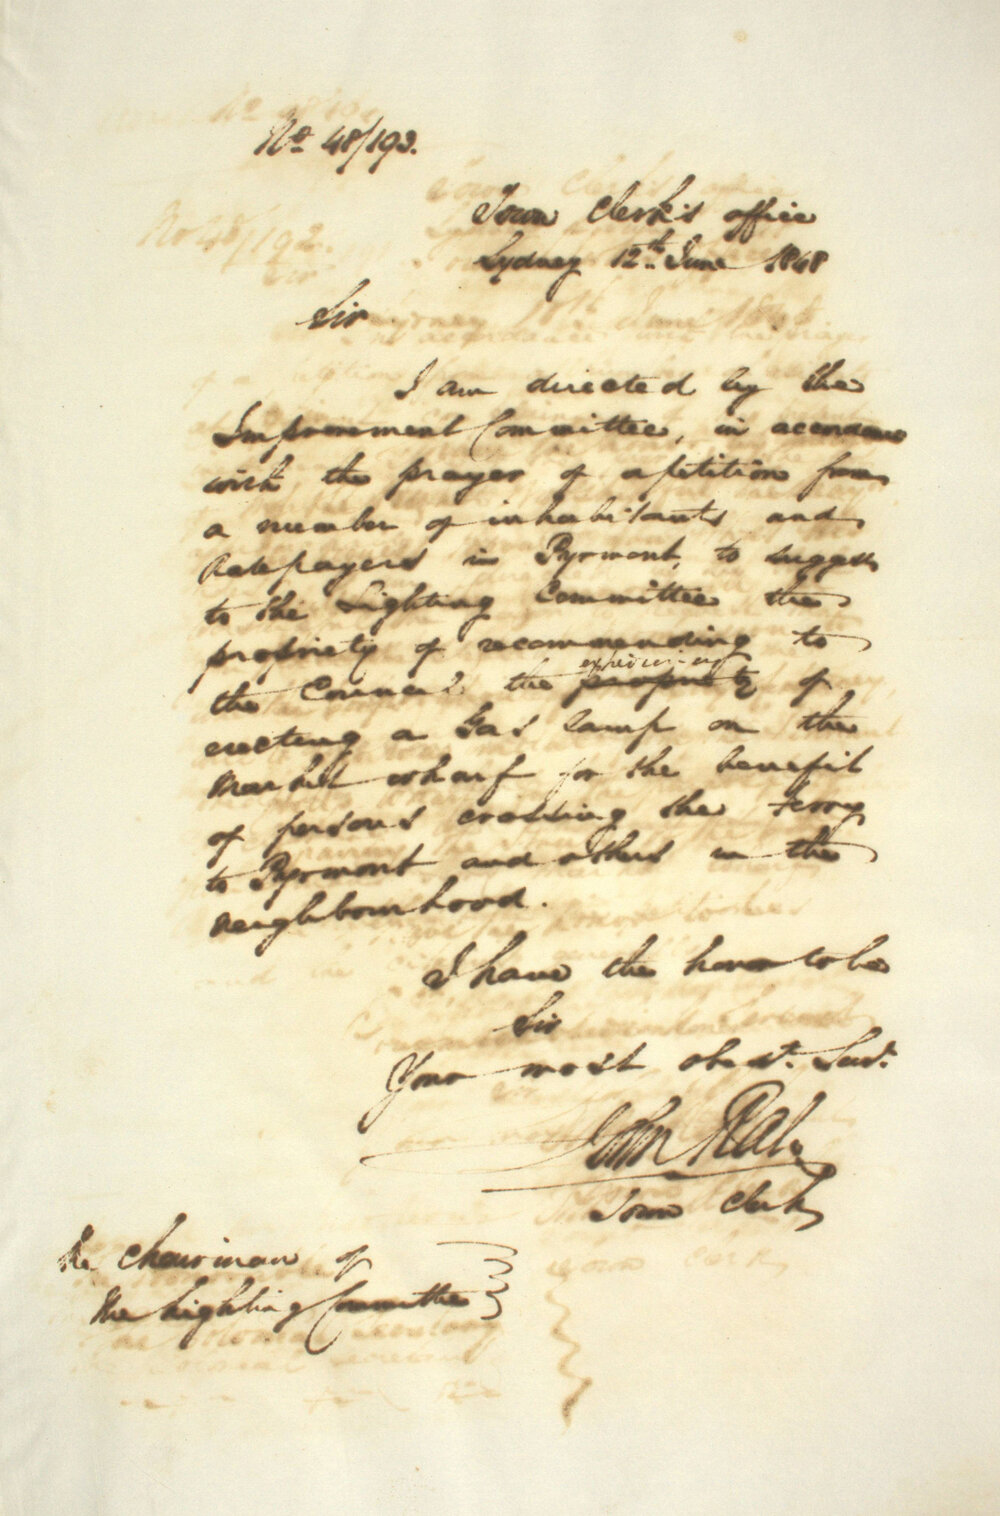 No 48/192.
Town Clerk's office
Sydney 12th June 1848
Sir
I am directed by the
Improvement Committee, in accordance
with the prayer of a petition from
a number of inhabitants and
Ratepayers in Pyrmont, to suggest
to the Lighting Committee the
propriety of recommending to
expediency
the Council the propriety of
erecting a Gas lamp on the
Market wharf for the benefit
of persons crossing the ferry
to Pyrmont and others in the
neighbourhood.
I have the honor to be
Sir
Your most obedt. Servt.
John Rae
Town Clerk
The Chairman of
the Lighting Committee